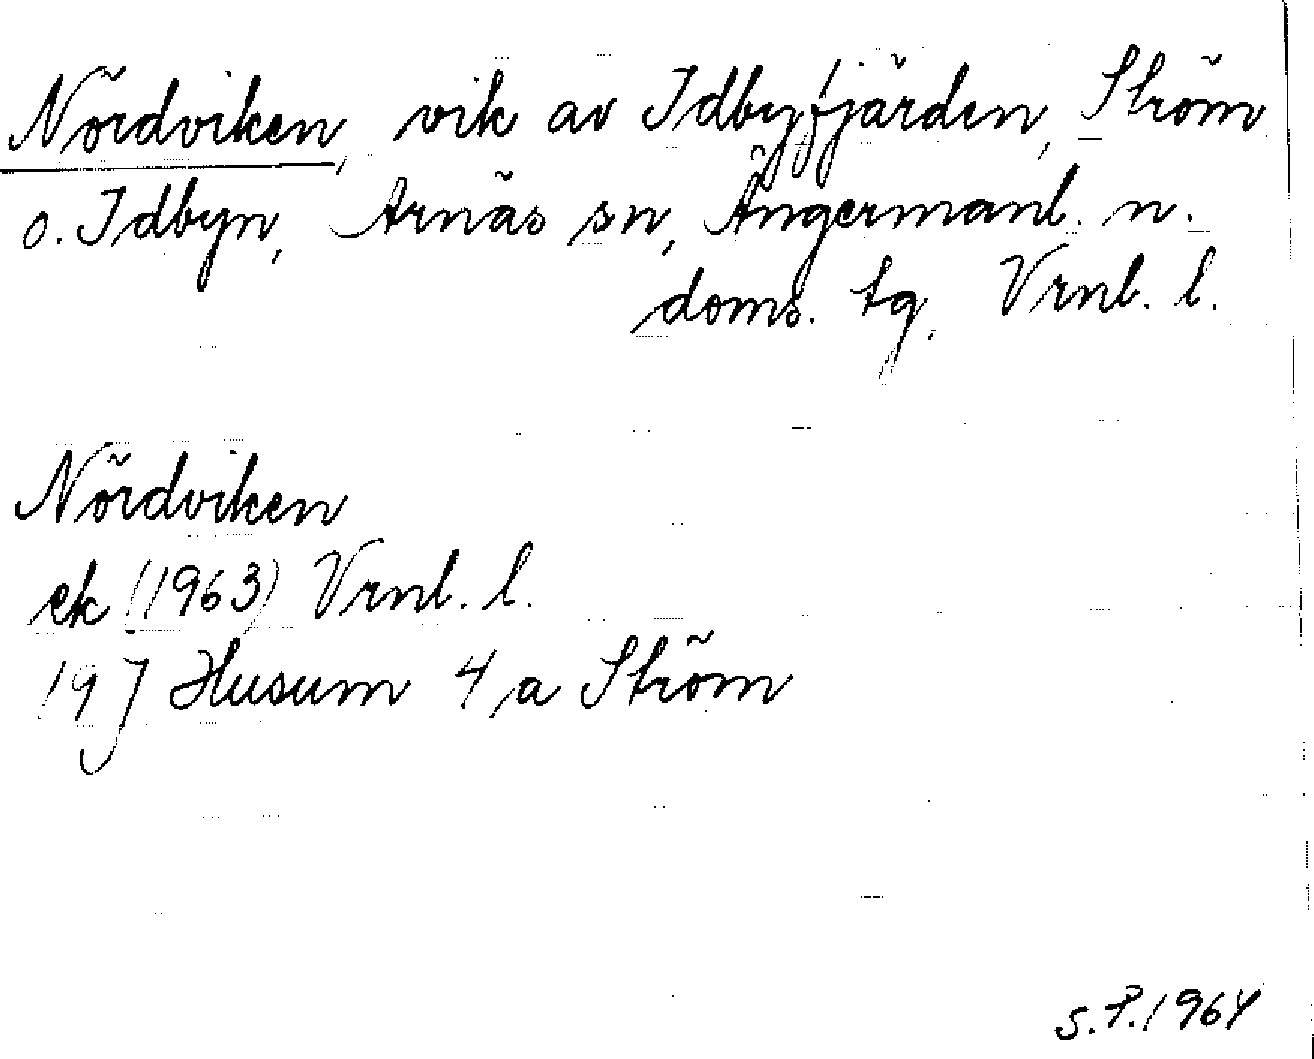 Nördviken, vik av Idbyfjärden, Ström
o. Idbyn, Arnäs sn, Ångermanl. n.
doms. tg, Vrnl. l.
Nördviken
ek (1963) Vrnl. l.
19 J Husum 4 a Ström
S.P. 1964